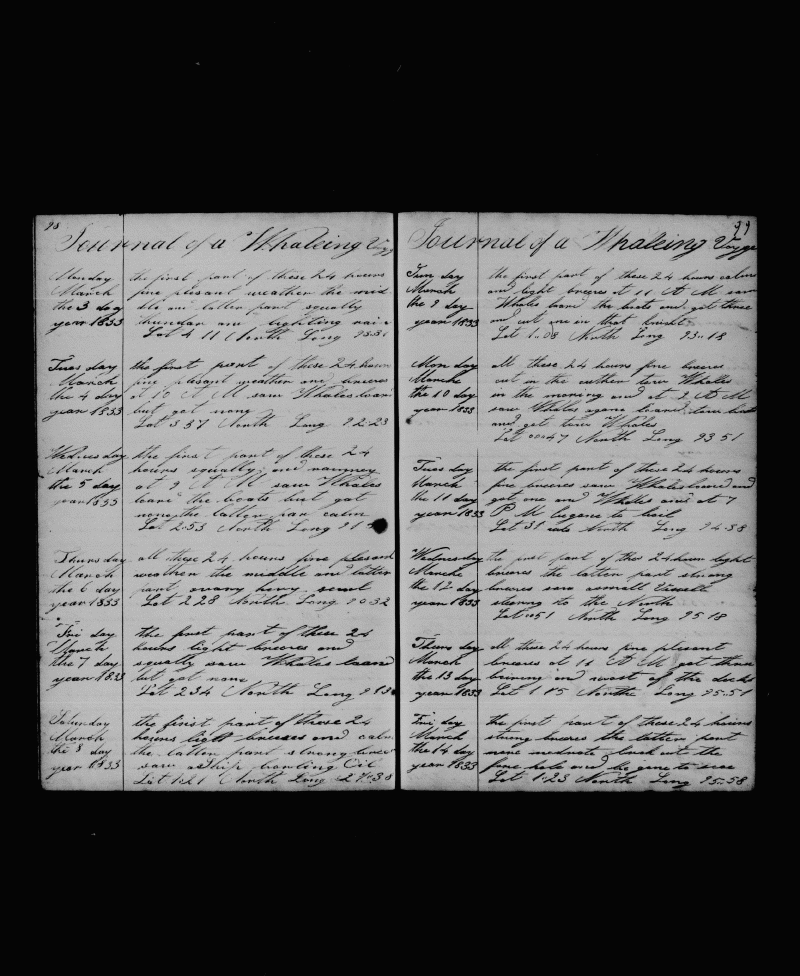 98
Journal of a Whaleing Voyge
Monday the first part of these 24 hours
March fine plesant weather the mid
the 3 day dle and latter part squally
year 1833 thundar and lighting rain
Lat 4 11 North Long
Tues day the first part of these 24 hours
March fine plesant weather and breeses
the 4 day at 10 A M saw Whales
year 1833 but got none
Lat 3 57 North Long 92-23
Wednesday the first part of these 24
March hours squally and
the 5 day at 9 A M saw Whales
year 1833 the boats but got
none the latter part calm
Lat 2-53 North Long 91
Thursday all these 24 hours fine plesant
March weather the middle and latter
the 6 day part
year 1833 Lat 2 28 North Long 90-32
Fri day the first part of these 24
March hours light breeses and
the 7 day squally saw Whales
year 1833 but got none
Lat 2 34 North Long
Saturday the first part of these 24
March hours light breeses and calm
the 8 day the latter part strong
year 1833 saw a ship Oil
Lat 1-21 North Long
99
Journal of a Whaleing Voyge
Sun day the first part of these 24 hours calm
March and light breeses at 11 A M saw
the 9 day Whales the boats and got three
year 1833 and cut one in that
Lat 1-08 North Long 93-18
Mon day All these 24 hours fine breeses
March cut in the other tow Whales
the 10 day in the morning and at 9 A M
year 1833 saw Whales agane
and got tow Whales
Lat 00-47 North Long 93 51
Tues day the first part of these 24 hours
March fine breeses saw Whales and
the 11 day got one and Whales at 7
year 1833 P M begane to
Lat 31 North Long 94-58
Wednesday the first part of thes 24 hour light
Marche breeses the latter part strong
the 12 day breeses saw a small
year 1833 to the North
Lat North Long 95 18
Thurs day All these 24 hours fine plesent
March breeses at 11 A M got three
the 13 day of the decks
year 1833 Lat 1 15 North Long 95-51
Fri day the first part of these 24 hours
March strong breeses the latter part
the 14 day more moderate out the
year 1833 fore hole and be gane to
Lat 1-23 North Long 95-58